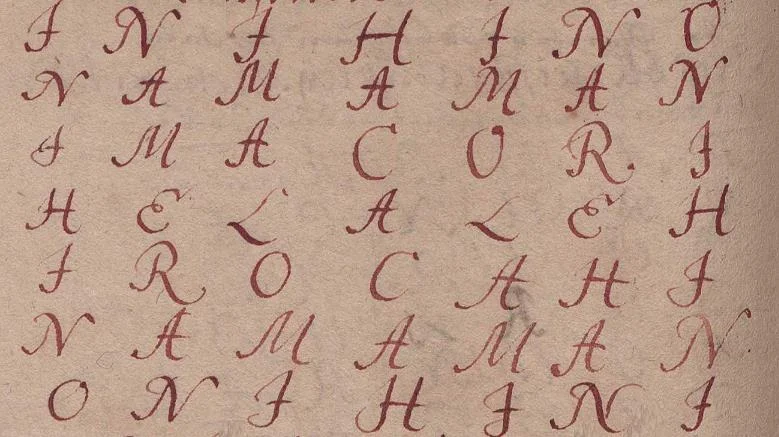 I N I H I N O
N A M A M A N
I M A C O R I
H E L A L E H
I R O C A H I
N A M A M A N
O N I H I N I